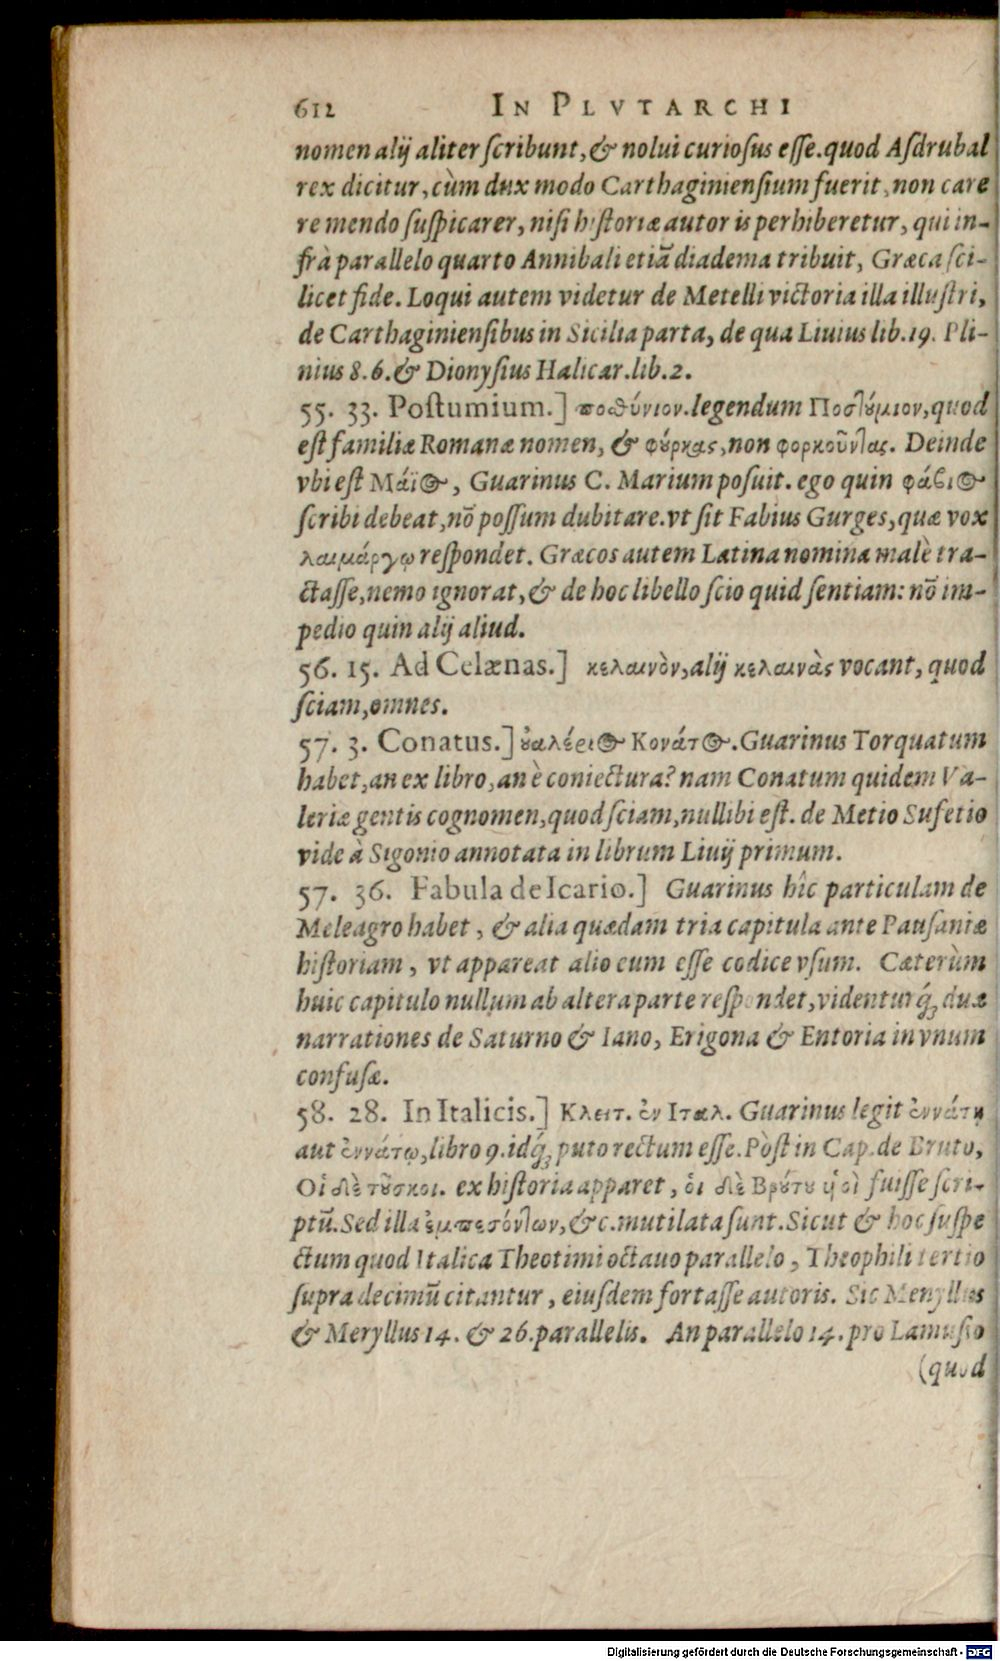 612 IN PLVTARCHI
nomen alij aliter ſcribunt, & nolui curioſus eſſe. quod Aſdrubal
rex dicitur, cùm dux modo Carthaginienſium fuerit, non care
re mendo ſuſpicarer, niſi hiſtoriæ autor is perhiberetur, qui in-
frà parallelo quarto Annibali etiã diadema tribuit, Græca ſci-
licet fide. Loqui autem videtur de Metelli victoria illa illuſtri,
de Carthaginienſibus in Sicilia parta, de qua Liuius lib.19. Pli-
nius 8.6. & Dionyſius Halicar. lib.2.
55. 33. Poſtumium.] ποϑύνιον. legendum Ποστύμιον, quod
eſt familiæ Romanæ nomen, & φύρκας, non φορκοῦντας. Deinde
vbi eſt Μάϊος, Guarinus C. Marium poſuit. ego quin φάβιος
ſcribi debeat, nõ poſſum dubitare. vt ſit Fabius Gurges, quæ vox
λαιμάργῳ reſpondet. Græcos autem Latina nomina malè tra-
ctaſſe, nemo ignorat, & de hoc libello ſcio quid ſentiam: nõ im-
pedio quin alij aliud.
56. 15. Ad Celænas.] κελαινὸν, alij κελαινὰς vocant, quod
ſciam, omnes.
57. 3. Conatus.] ȣαλέριος Κονάτος. Guarinus Torquatum
habet, an ex libro, an è coniectura? nam Conatum quidem Va-
leriæ gentis cognomen, quod ſciam, nullibi eſt. de Metio Sufetio
vide à Sigonio annotata in librum Liuij primum.
57. 36. Fabula de Icario.] Guarinus hîc particulam de
Meleagro habet, & alia quædam tria capitula ante Pauſaniæ
hiſtoriam, vt appareat alio eum eſſe codice vſum. Cæterùm
huic capitulo nullum ab altera parte reſpondet, videnturq́; duæ
narrationes de Saturno & Iano, Erigona & Entoria in vnum
confuſæ.
58. 28. In Italicis.] Κλειτ. ἐν Ιταλ. Guarinus legit ἐννάτῃ
aut ἐννάτῳ, libro 9. idq́; puto rectum eſſe. Pòſt in Cap. de Bruto,
Οἱ διὲ τȣ͂σκοι. ex hiſtoria apparet, οἱ διὲ Βρύτȣ ὑοὶ fuiſſe ſcri-
ptũ. Sed illa ἐμπεσόντων, &c. mutilata ſunt. Sicut & hoc ſuſpe
ctum quod Italica Theotimi octauo parallelo, Theophili tertio
ſupra decimũ citantur, eiuſdem fortaſſe autoris. Sic Menyllus
& Meryllus 14. & 26. parallelis. An parallelo 14. pro Lamuſio
(quod
Digitalisierung gefördert durch die Deutsche Forschungsgemeinschaft - DFG